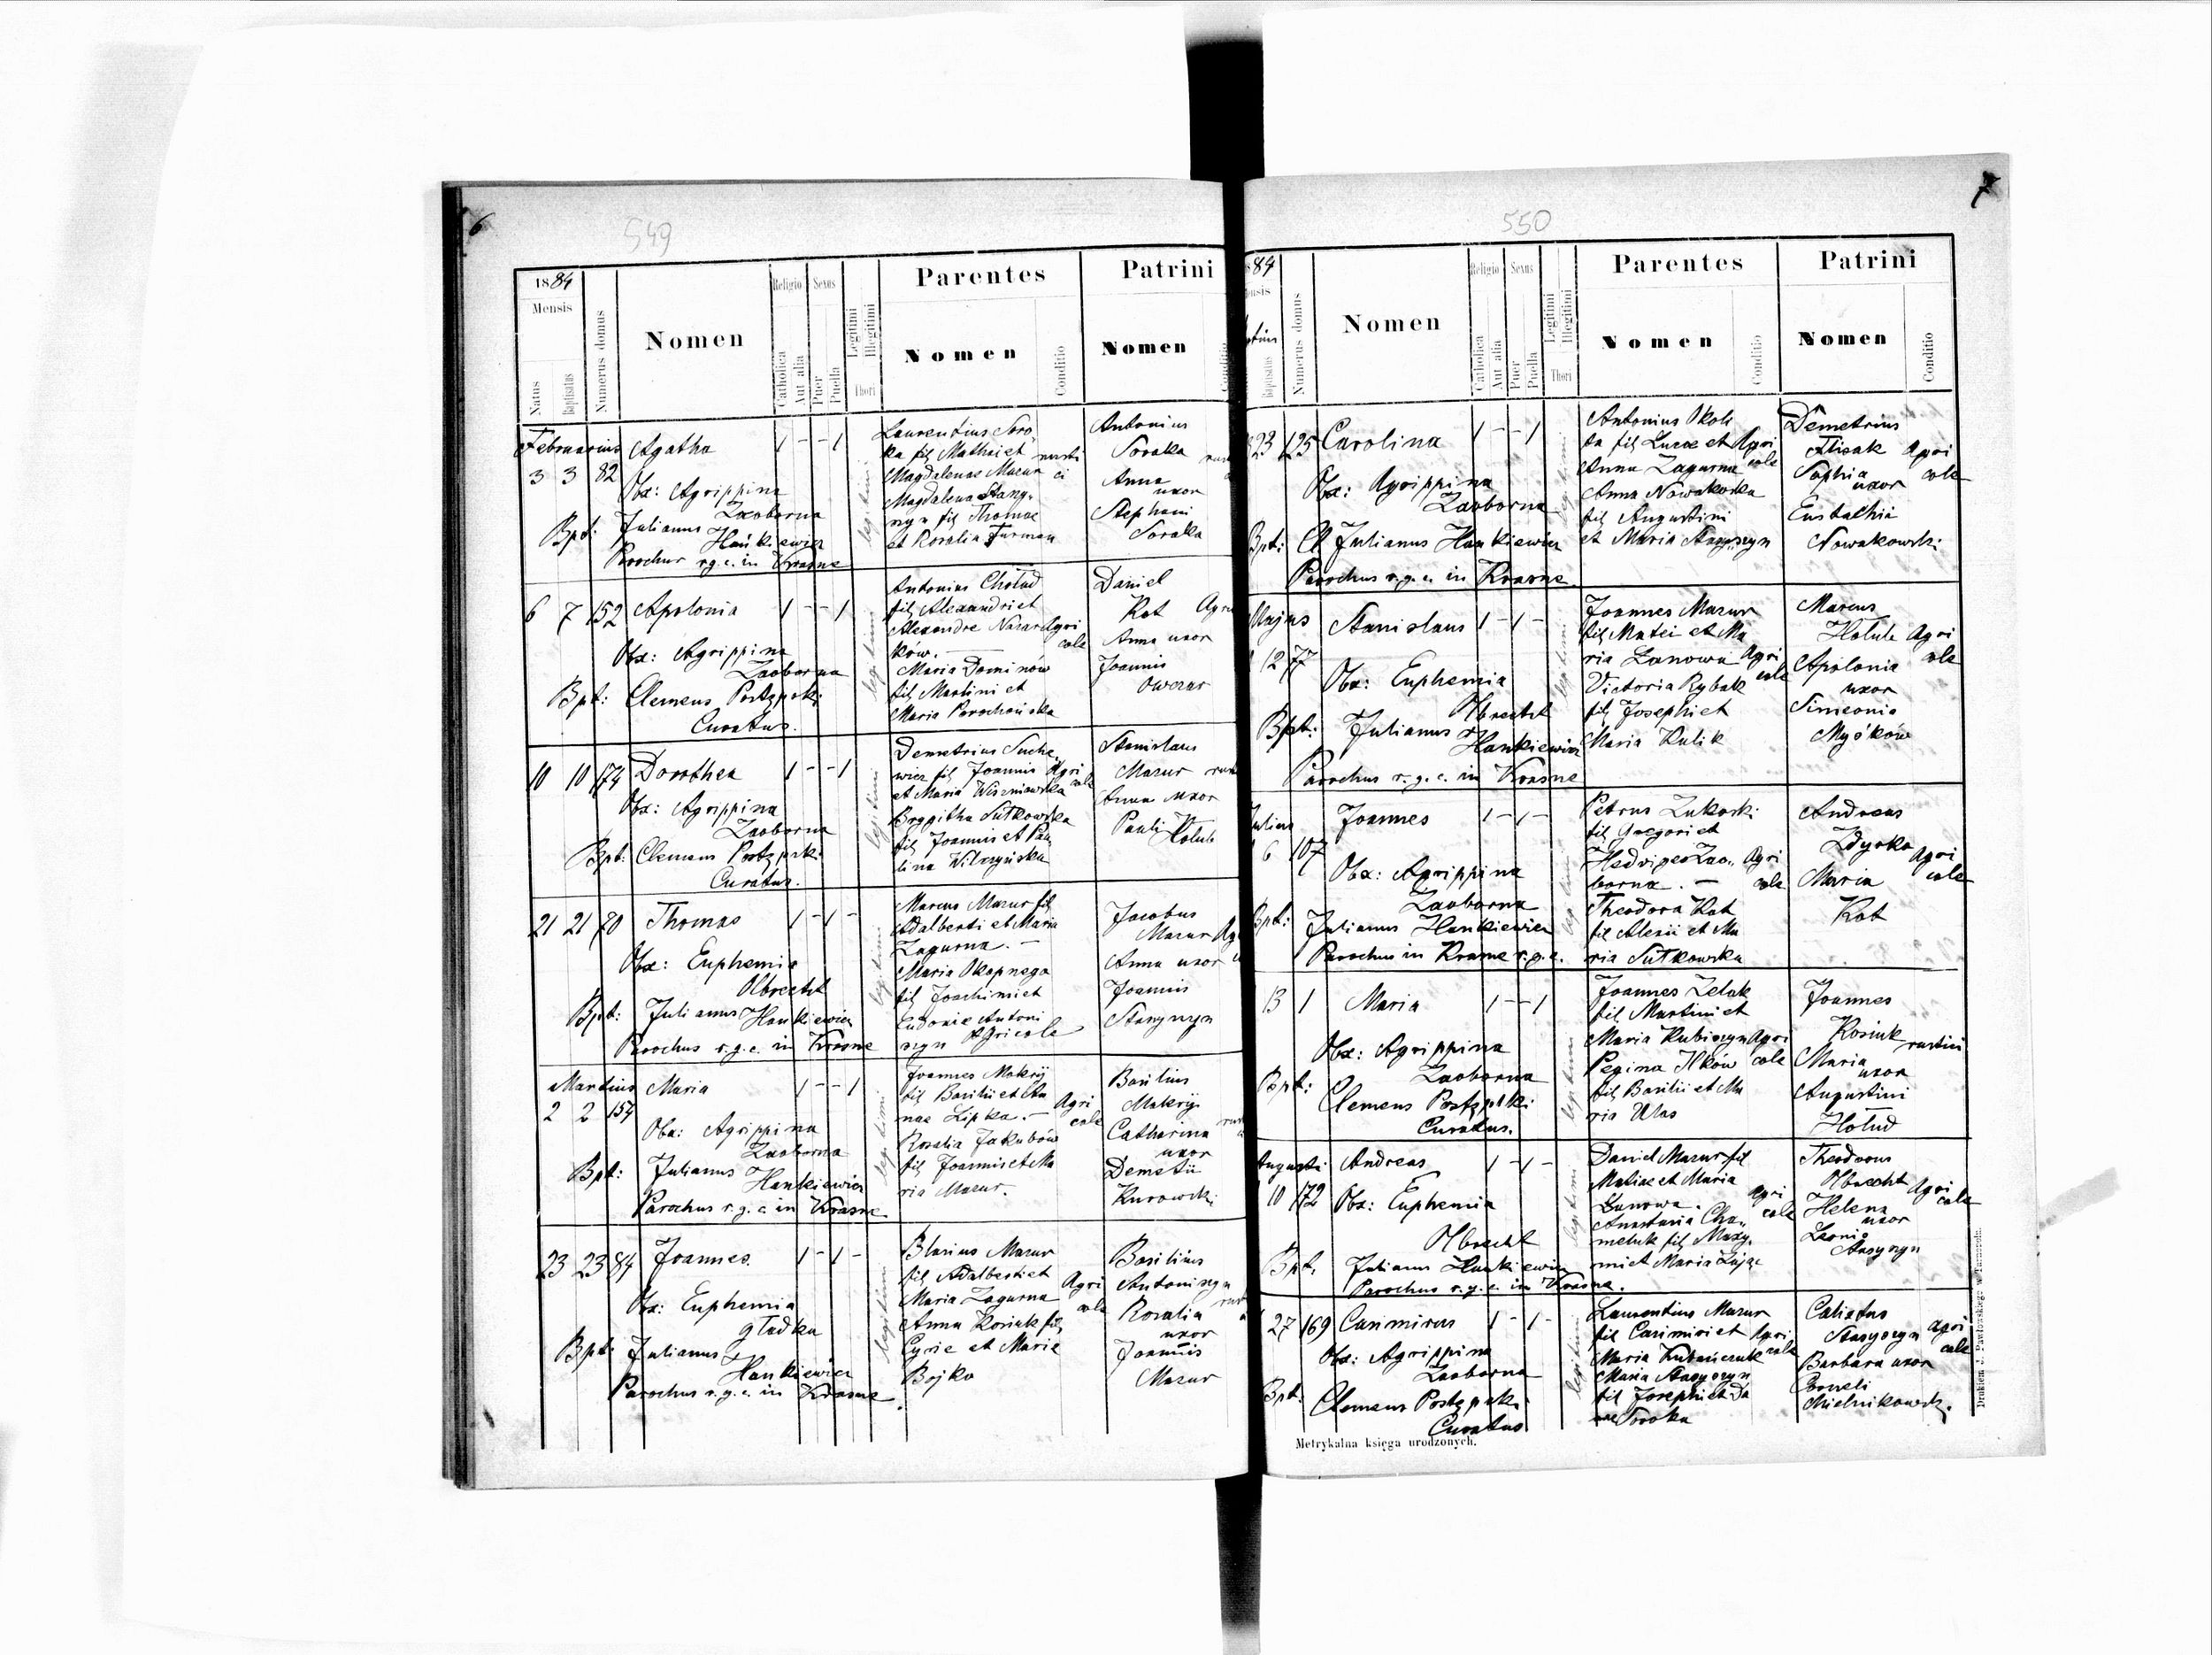 6
549
1884
Mensis
Natus
Baptisatus
Numerus domus
Nomen
Religio
Catholica
Aut alia
Sexus
Puer
Puella
Legitimi
Illegitimi
Thori
Parentes
Nomen
Conditio
Patrini
Nomen
Februarius
3 3 82
Agatha
1 - - 1
Obx: Agrippina
Zaoborna
Bpt: Julianus
Hankiewicz
Parochus r.g.c. in Krasne
legitimi
Laurentius Soro
ka fil Mathai et
Magdalenas Mazur
Magdalena Stasy-
szyn fil Thomae
et Rosalia Furman
rusti
ci
Antonius
Soroka
Anna
uxor
Stephani
Soroka
6 7 152
Apolonia
1 - - 1
Obx: Agrippina
Zaoborna
Bpt: Clemens Postępski
Curatus.
legitimi
Antonius Chołud
fil Alexandri et
Alexandre Nazar
kow.
Maria Dominów
fil Martini et
Maria
Agri
cole
Daniel
Kot
Anna uxor
Joannis
Owczar
10 10 174
Dorothea
1 - - 1
Obx: Agrippina
Zaoborna
Bpt: Clemens Postępski
Curatus.
legitimi
Demetrius Suche
wicz fil Joannis
et Maria Wiszniowska
Brygitha Sutkowska
fil Joannis et Pau
lina Wilczyńska
Agri
cole
Stanislaus
Mazur
Anna uxor
Pauli
Holub
21 21 70
Thomas
1 - 1 -
Obx: Euphemia
Olbrecht
Bpt: Julianus Hankiewicz
Parochus r.g.c. in Krasne
legitimi
Marcus Mazur fil
Adalberti et Maria
Zagurna. -
Maria Okapnega
fil Joachimi et
Eudonie Antoni
szyn Agricole
Jacobus
Mazur
Anna uxor
Joannis
Stasyszyn
Martius
2 2 157
Maria
1 - - 1
Obx: Agrippina
Zaoborna
Bpt: Julianus
Hankiewicz
Parochus r.g.c. in Krasne
legitimi
Joannes Mokrij
fil Basilii et An
nae Lipka. -
Rosalia Jakubów
fil Joannis et Ma
ria Mazur.
Agri
cole
Basilius
Mokrij
Catharina
uxor
Demetii
Kurowski
23 23 84
Joannes.
1 - 1 -
Obx: Euphemia
Gładka
Bpt: Julianus
Hankiewicz
Parochus r.g.c. in Krasne.
legitimi
Blasius Mazur
fil Adalberti et
Maria Zagurna
Anna Kosiuk fil
Cyrie et Marie
Bojko
Agri
cole
Basilius
Antoniszyn
Rosalia
uxor
Joannis
Mazur
7
550
Baptisatus
Numerus domus
Nomen
Religio
Catholica
Aut alia
Sexus
Puer
Puella
Legitimi
Illegitimi
Thori
Parentes
Nomen
Conditio
Patrini
Nomen
Conditio
23 125
Carolina
1 - - 1
Obx: Agrippina
Zaoborna
Bpt: Julianus Hankiewicz
Parochus r.g.c. in Krasne
legitimi
Antonius Skoli
fil Lucae et
Anna Zagurna
Anna Nowakowska
fil Augustini
et Maria Stasyszyn
Agri
cole
Demetrius
Flisak
Sophia
uxor
Eustathii
Nowakowski
Agri
cole
Majus
12 77
Stanislaus
1 - 1 -
Obx: Euphemia
Olbrecht
Bpt: Julianus
Hankiewicz
Parochus r.g.c. in Krasne
legitimi
Joannes Mazur
fil Matei et Ma
ria Lanowa
Victoria Rybak
fil Josephi et
Maria Kulik
Agri
cole
Marcus
Holub
Apolonia
uxor
Simeonis
Myśków
Agri
cole
6 107
Joannes
1 - 1 -
Obx: Agrippina
Zaoborna
Bpt: Julianus Hankiewicz
Parochus in Krasne r.g.c.
legitimi
Petrus Zukoski
fil Gregori et
Hedvigeo Zao-
borna. -
Theodora Kot
fil Alexii et Ma
ria Sutkowska
Agri
cole
Andreas
Zdyrko
Maria
Kot
Agri
cole
13 1
Maria
1 - - 1
Obx: Agrippina
Zaoborna
Bpt: Clemens Postępski
Curatus.
legitimi
Joannes Zelak
fil Martini et
Maria Kubiszyn
Regina Ilków
fil Basilii et Ma
ria Ulas
Agri
cole
Joannes
Kosiuk
Maria
uxor
Augustini
Hołud
rustici
Augusti
10 172
Andreas
1 - 1 -
Obx: Euphemia
Olbrecht
Bpt. Julianus Hankiewicz
Parochus r.g.c. in Krasna.
legitimi
Daniel Mazur fil
Matiae et Maria
Lanowa.
Anastasia Cha-
meluk fil Maxy-
mi et Maria Zając
Agri
cole
Theodorus
Olbrecht
Helena
uxor
Leonis
Stasyszyn
Agri
cole
27 169
Casimirus
1 - 1 -
Obx: Agrippina
Zaoborna
Bpt: Clemens Postępski
Curatus
legitimi
Laurentius Mazur
fil Casimiri et
Maria Kubańczuk
Maria Stasyszyn
fil Josephi et Da
Soroka
Agri
cole
Calixtus
Stasyszyn
Barbara uxor
Corneli
Chielnikowski.
Agri
cole
Metrykalna księga urodzonych.
Drukiem J. Pawłowskiego w Tarnopolu.